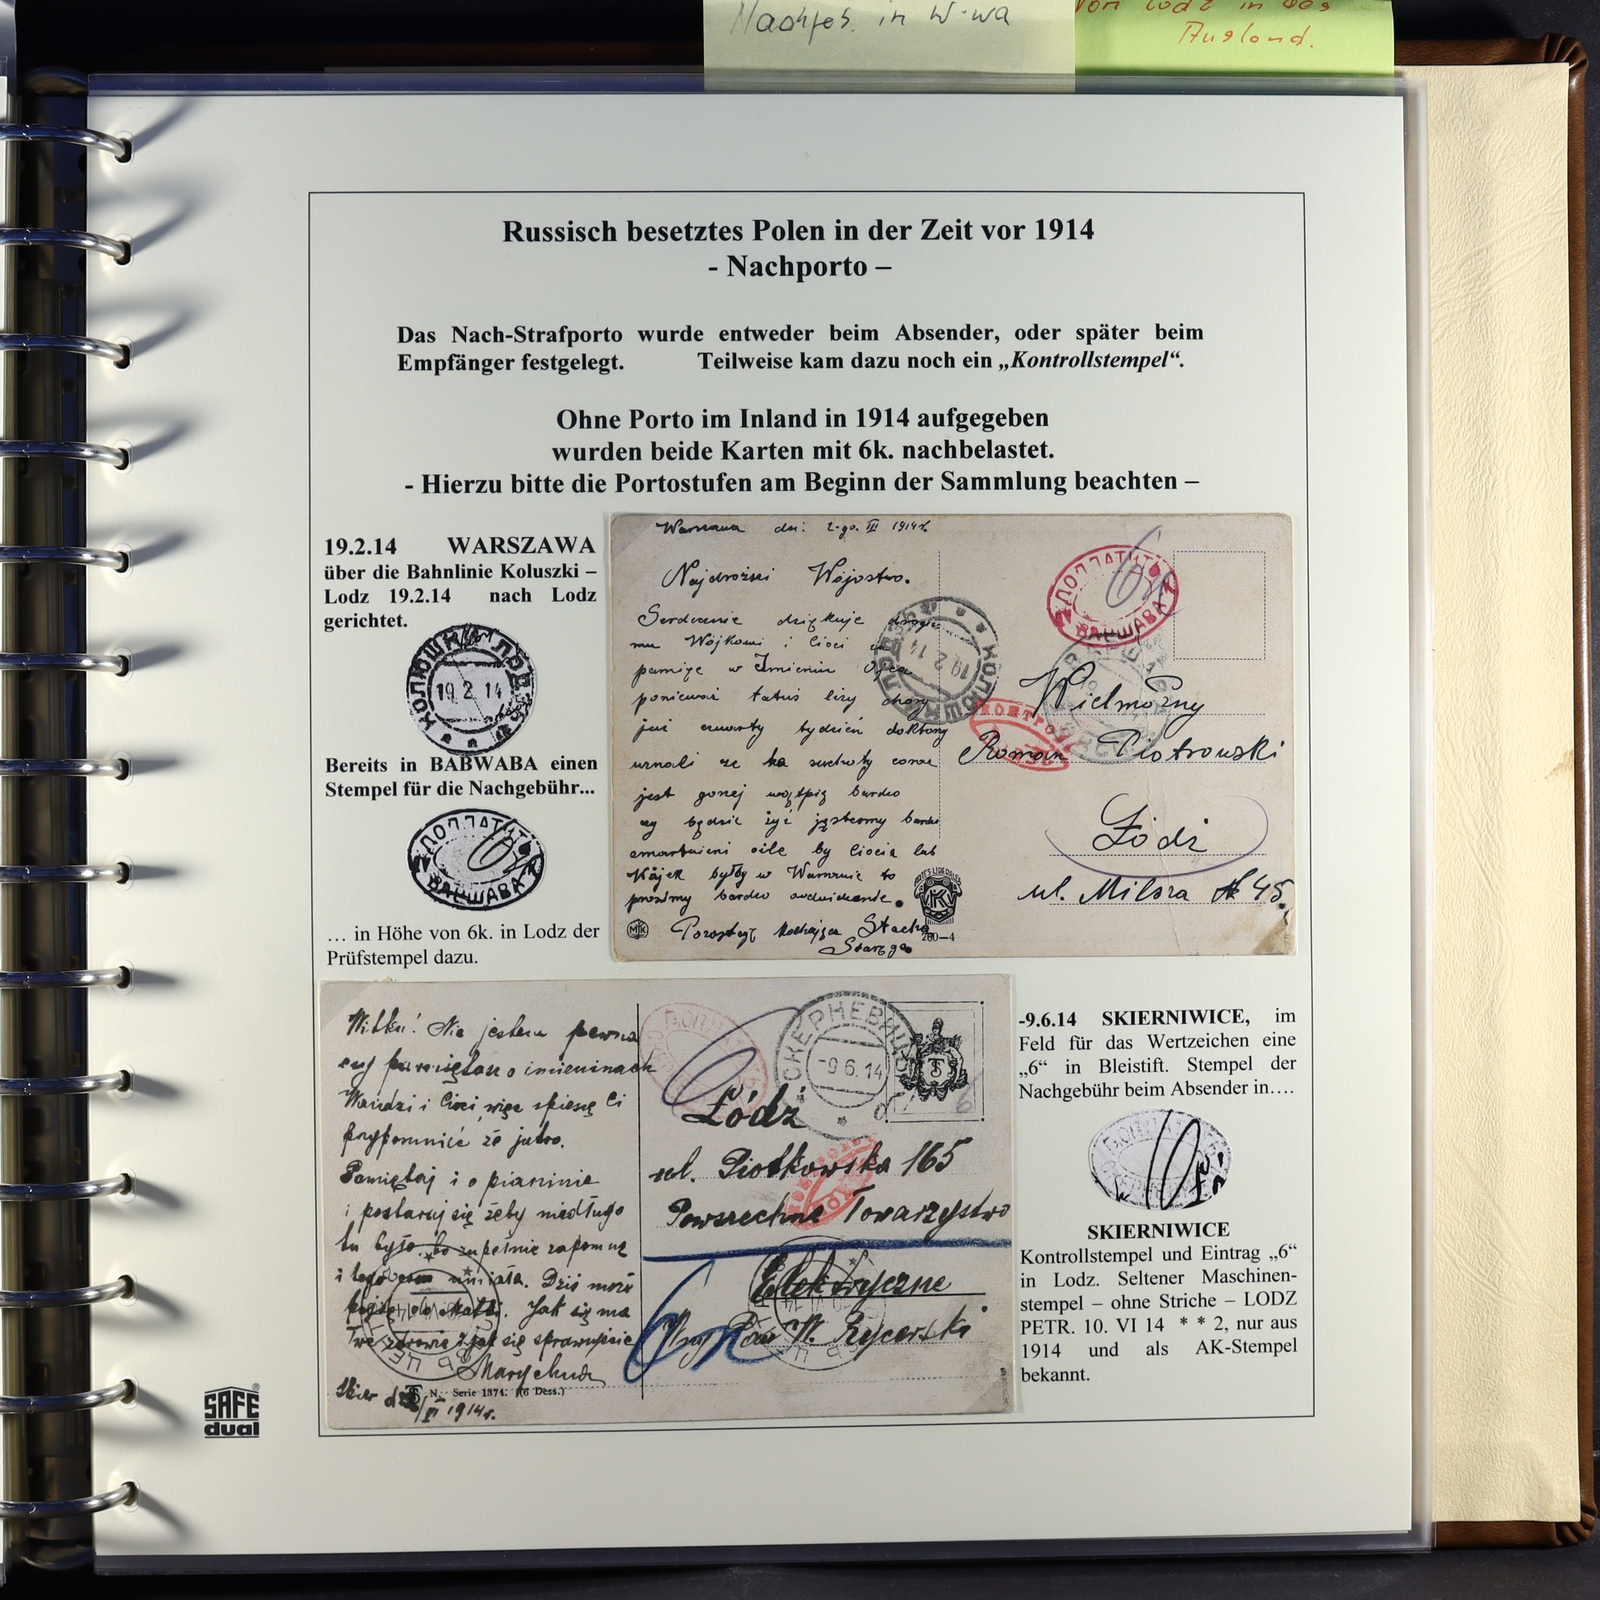 Nachgeb. in W-wa
von Lodz in das
Ausland.
Russisch besetztes Polen in der Zeit vor 1914
- Nachporto –
Das Nach-Strafporto wurde entweder beim Absender, oder später beim
Empfänger festgelegt. Teilweise kam dazu noch ein „Kontrollstempel“.
Ohne Porto im Inland in 1914 aufgegeben
wurden beide Karten mit 6k. nachbelastet.
- Hierzu bitte die Portostufen am Beginn der Sammlung beachten –
19.2.14 WARSZAWA
über die Bahnlinie Koluszki –
Lodz 19.2.14 nach Lodz
gerichtet.
КОЛЮШКИ ЛОДЗЬ
19.2.14
Bereits in BABWABA einen
Stempel für die Nachgebühr...
ДОПЛАТИТЬ
ВАРШАВА
... in Höhe von 6k. in Lodz der
Prüfstempel dazu.
Warszawa dn: 2-go. III 1914r.
Najdrożsi Wójostwo.
Serdecznie dziękuję
Wójkowi i Cioci
pamięć w Imieniu Ojca
ponieważ tatuś leży chory
już czwarty tydzień doktorzy
jest gorzej bardzo
czy będzie żyć jesteśmy
by Ciocia lub
Wójek byłby w Warszawie to
prosimy bardzo
Stacha
MJK
280–4
ДОПЛАТИТЬ
ВАРШАВА
КОЛЮШКИ ЛОДЗЬ
19 2 14
Wielmożny
Roman Piotrowski
Łódź
ul. Milsza № 45.
Witku! Nie jestem pewna
czy pamiętasz o imieninach
Wandzi i Cioci więc spieszę Ci
przypomnieć że jutro.
Pamiętaj i o pianinie
i postaraj się żeby niedługo
tu było, bo zupełnie zapomnę
Dziś
Jak się ma
Twe zdrowie i jak się sprawujesz
Skier
VI 1914r.
N. Serie 1874. (6 Dess.)
СКЕРНЕВИЦЫ
-9 6.14
6
Łódź
ul. Piotrkowska 165
Powszechne Towarzystwo
Elektryczne
W. Rycerski
-9.6.14 SKIERNIWICE, im
Feld für das Wertzeichen eine
„6“ in Bleistift. Stempel der
Nachgebühr beim Absender in….
SKIERNIWICE
Kontrollstempel und Eintrag „6“
in Lodz. Seltener Maschinen-
stempel – ohne Striche – LODZ
PETR. 10. VI 14 * * 2, nur aus
1914 und als AK-Stempel
bekannt.
SAFE®
dual